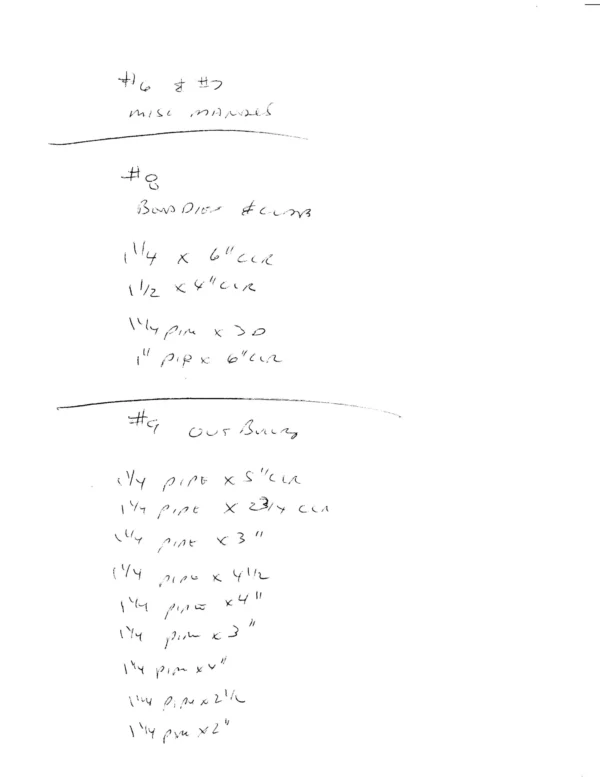 #6 & #7
MISC MANDRELS
#8
BEND DIES & CLAMP
1 1/4 x 6" CLR
1 1/2 x 4" CLR
1 1/4 PIPE x 3D
1" PIPE x 6" CLR
#9
1 1/4 PIPE x 5" CLR
1 1/4 PIPE x 2 3/4 CLR
1 1/4 PIPE x 3"
1 1/4 PIPE x 4 1/2
1 1/4 PIPE x 4"
1 1/4 PIPE x 3"
1 1/4 PIPE x 4"
1 1/4 PIPE x 2 1/2
1 1/4 PIPE x 2"